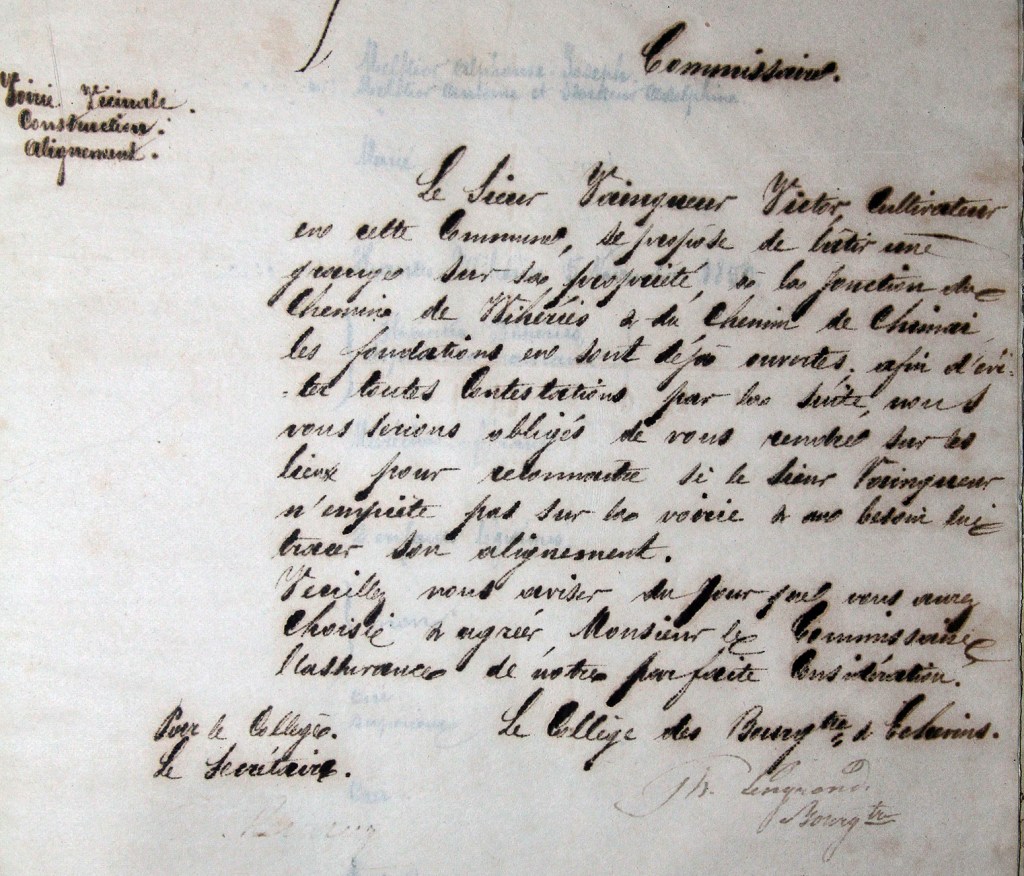 Commissaire.
Voirie Vicinale.
Construction.
Alignement.
Le Sieur Vainqueur Victor, Cultivateur
en cette Commune, se propose de bâtir une
grange sur sa propriété, à la jonction du
Chemin de Wihéries & du Chemin de Chimai,
les fondations en sont déjà ouvertes, afin d'évi-
-ter toutes Contestations par la suite, nous
vous serions obligés de vous rendre sur les
lieux pour reconnaitre si le sieur Vainqueur
n'empiète pas sur la voirie & au besoin lui
tracer son alignement.
Veuillez nous aviser du jour quel vous aurez
Choisie & agréer Monsieur le Commissaire
l'assurance de notre parfaite Considération.
Pour le Collège.
Le Collège des Bourgtre & Echevins.
Le Secrétaire.
Lengrand
Bourgtre